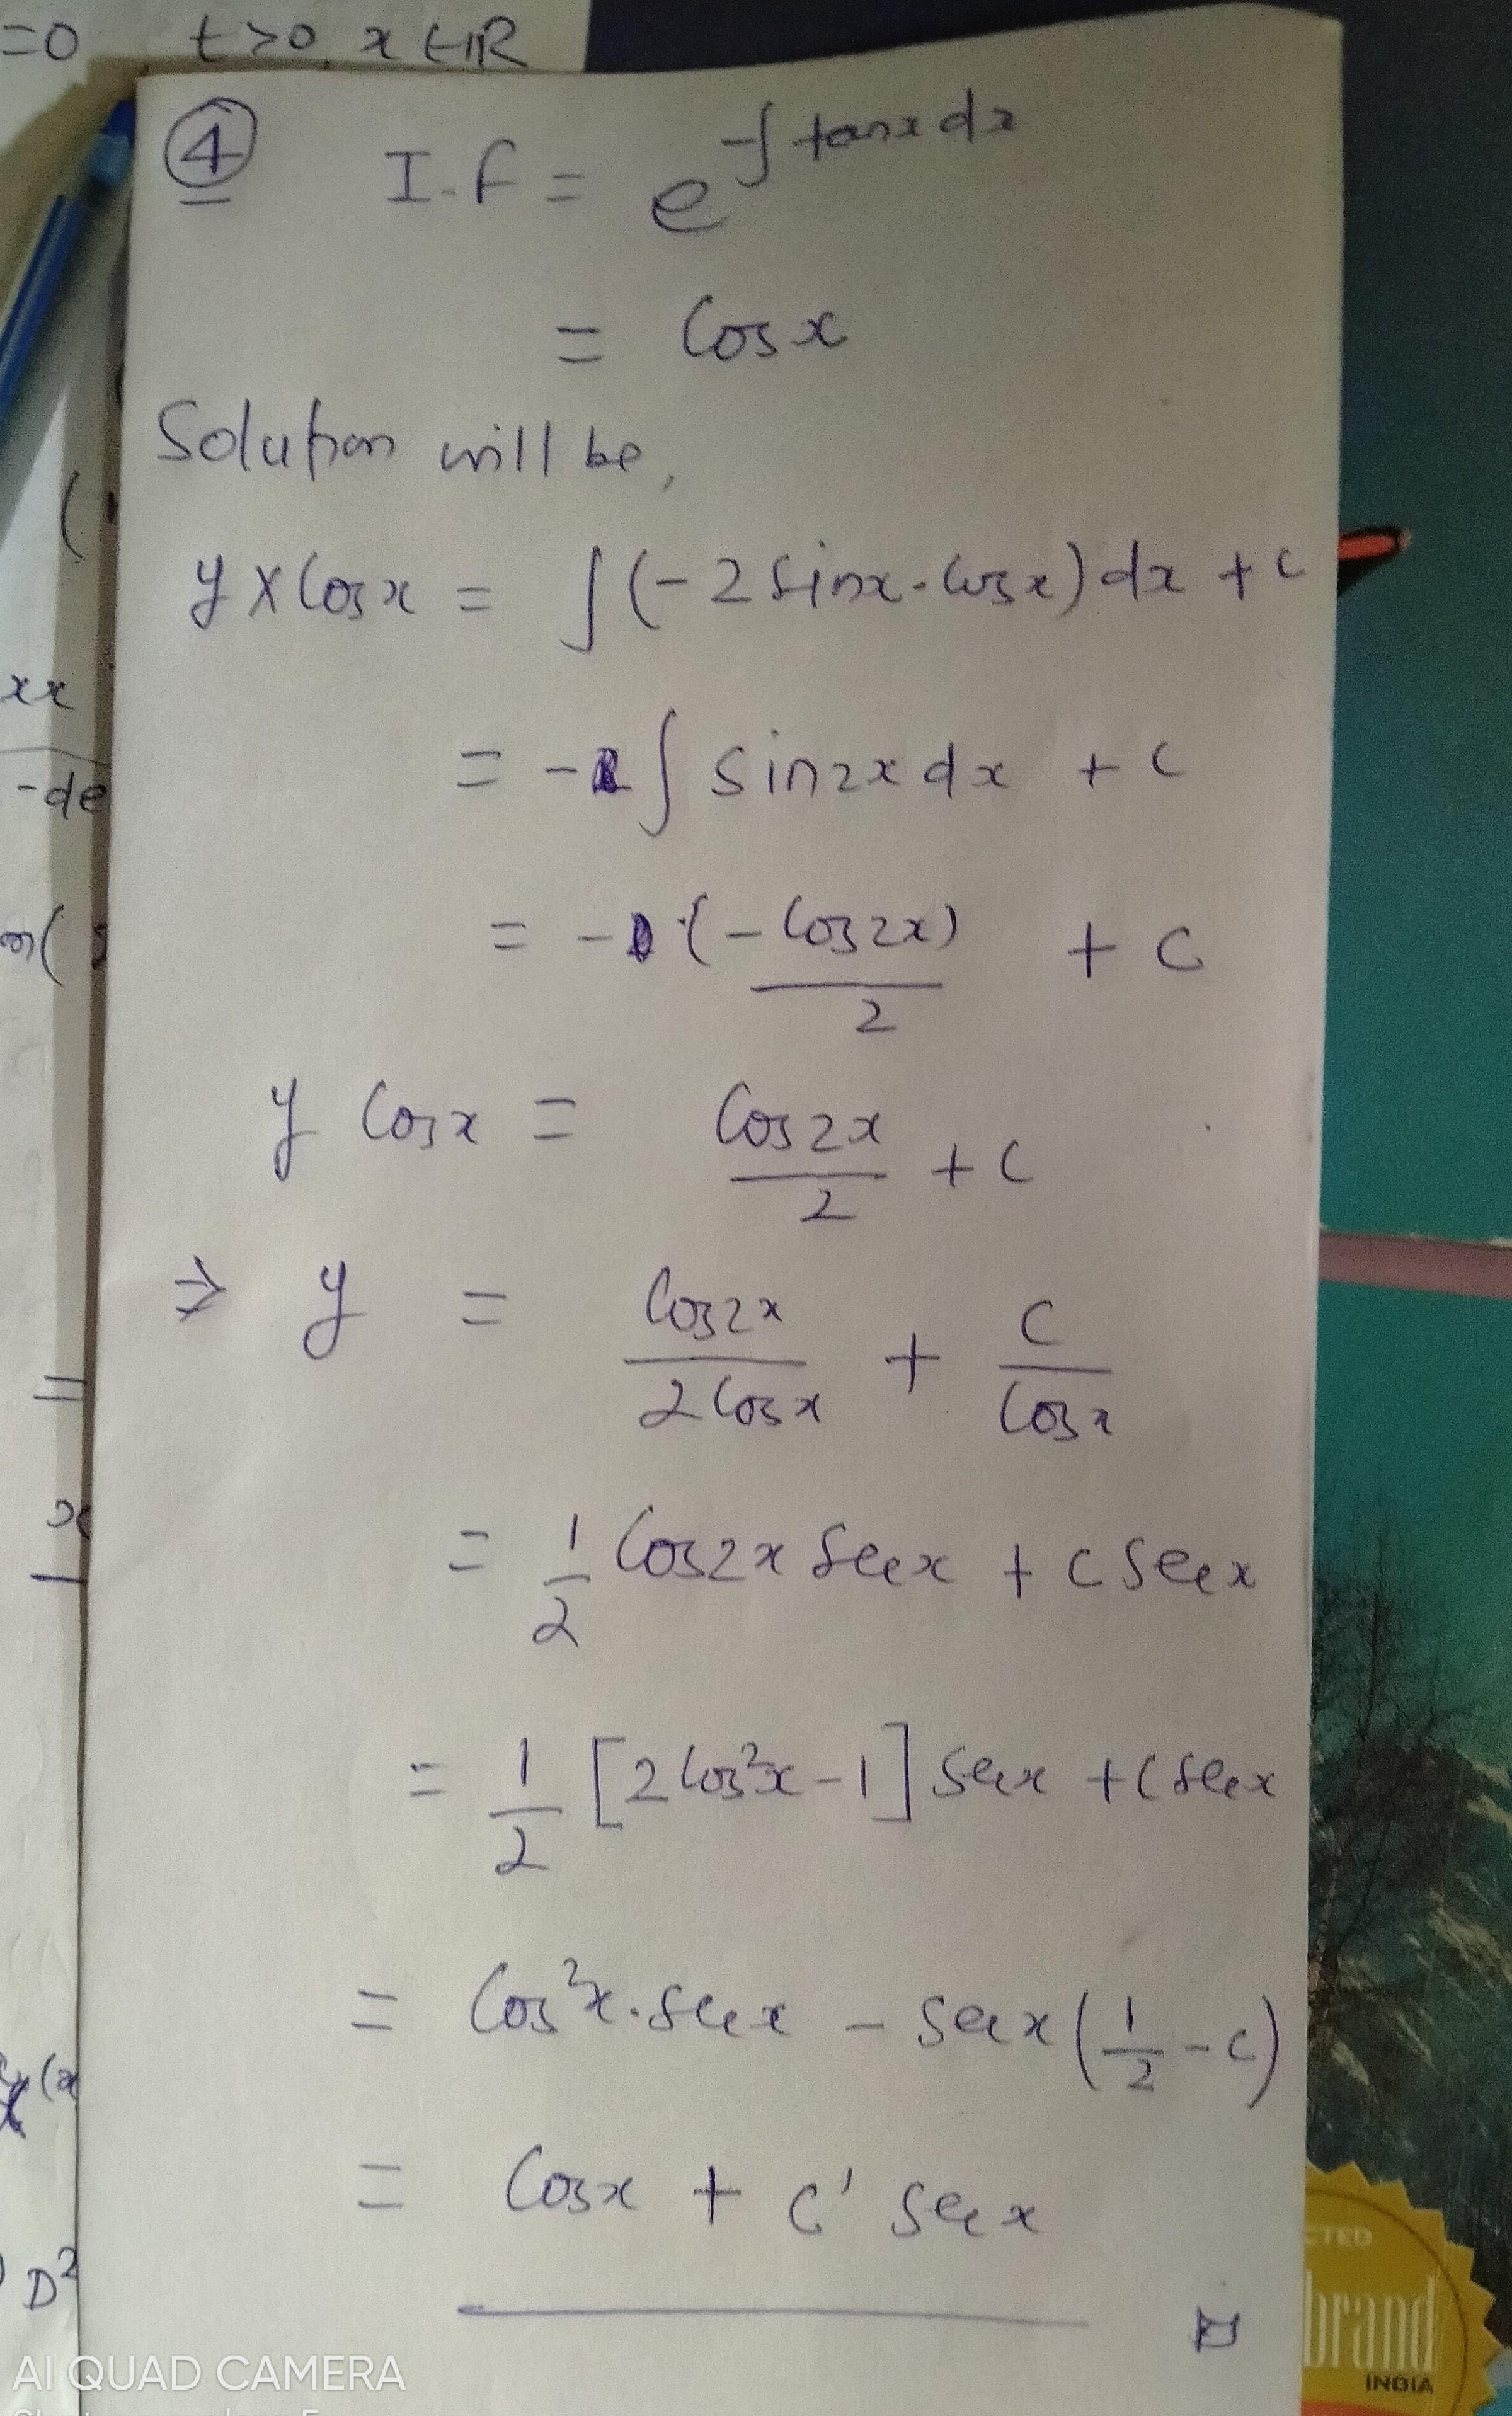 =0 t>0, x∈ℝ
④ I.F = e^{-∫tanx dx}
= Cosx
Solution will be,
y × Cosx = ∫(-2 sinx·cosx)dx + C
= -∫ sin2x dx + C
= -(-Cos2x)/2 + C
y Cosx = Cos2x/2 + C
⇒ y = Cos2x/2Cosx + C/Cosx
= 1/2 Cos2x Secx + C Secx
= 1/2 [2Cos²x-1] Secx + C Secx
= Cos²x·Secx - Secx(1/2 - C)
= Cosx + C' Secx
xx
-de
=
x
D²
CTED
brand
INDIA
AI QUAD CAMERA